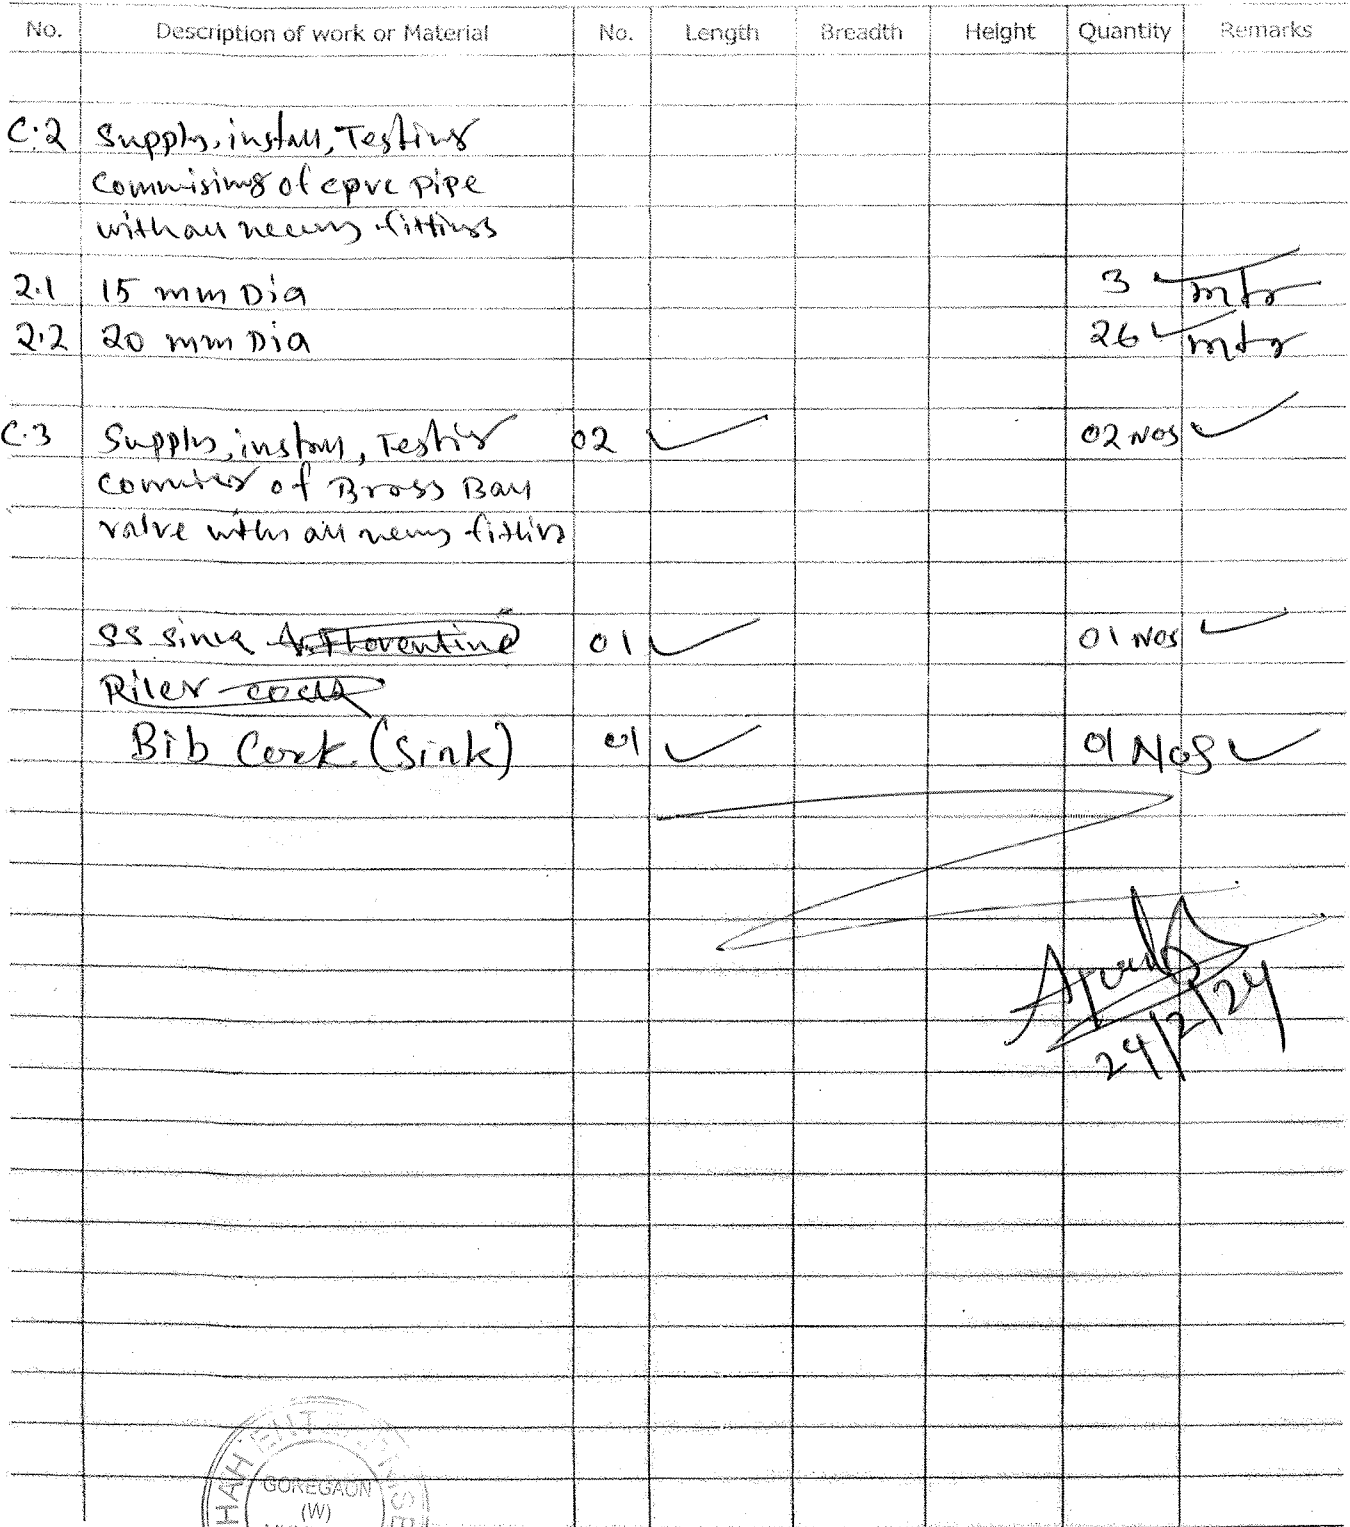 No. Description of work or Material No. Length Breadth Height Quantity Remarks
C.2 Supply, install, Testing
Commising of cpvc pipe
with all necery fittings
2.1 15 mm Dia 3 mtr
2.2 20 mm Dia 26 mtr
C.3 Supply, install, Testing 02 02 Nos
of Brass Ball
valve with all fitting
SS sink Florentine 01 01 Nos
Cock
Bib Cock (Sink) 01 01 Nos
24/2/24
SHAH ENTERPRISES
GOREGAON
(W)